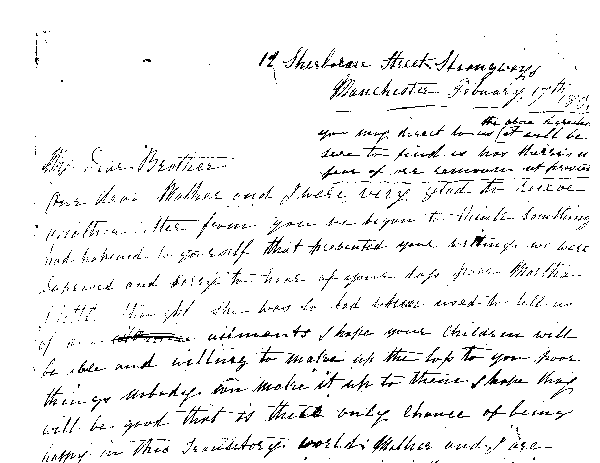 12 Sherborne Street Strangways
Manchester Febuary 17th
the above
you may direct to us it will be
sure to find us has theirs n
fear of our removem at present
My dear Brother
Our dear Mother and I were very glad to receve
another letter from you we began to think something
had hapened to yourself that presented your writings we were
supprised and sorry to hear of your loss poor Martha
little thought she was so bad when used to tell us
of ailments I hope your Children will
be able and willing to make up the loss to you poor
things nobody can make it up to them I hope they
will be good that is their only chance of being
happy in this Transitory world Mother and I are